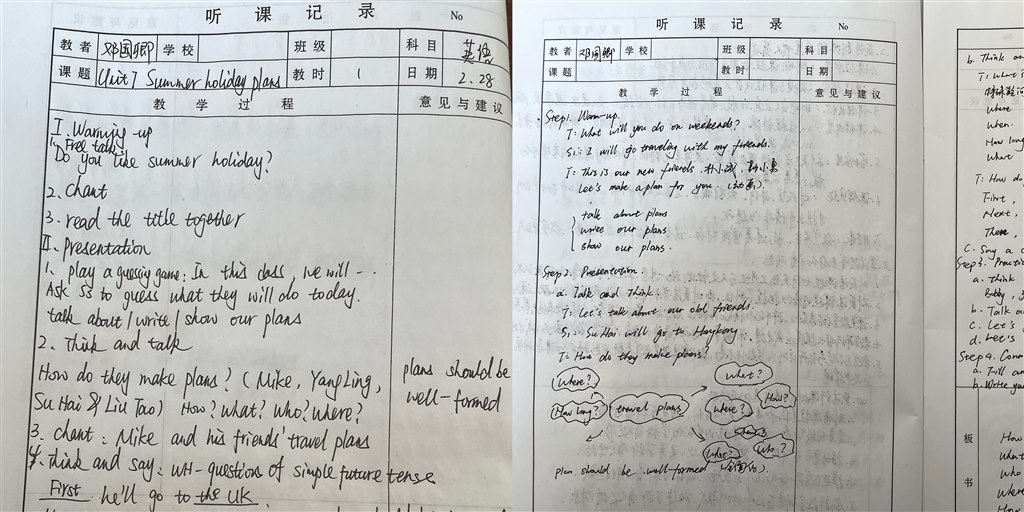 听 课 记 录 No
教者 邓国卿 学校 班级 科目 英语
课题 Unit 7 Summer holiday plans 教时 1 日期 2.28
教 学 过 程 意见与建议
I. Warming-up
1. Free talk
Do you like summer holiday?
2. Chant
3. read the title together
II. Presentation
1. play a guessing game: In this class, we will -..
Ask Ss to guess what they will do today.
talk about / write / show our plans
2. Think and talk
How do they make plans? (Mike, Yang Ling,
Su Hai & Liu Tao) How? What? Who? Where?
plans should be
well-formed
3. Chant: Mike and his friends' travel plans
4. Think and say: WH-questions of simple future tense
First he'll go to the UK.
听 课 记 录 No
教者 邓国卿 学校 班级 科目
课题 教时 日期
教 学 过 程 意见与建议
Step 1. Warm-up.
T: What will you do on weekends?
S1: I will go traveling with my friends.
T: This is our new friends
Let's make a plan for you.
talk about plans
write our plans
show our plans.
Step 2. Presentation.
a. Talk and Think.
T: Let's talk about our old friends.
S1: Su Hai will go to Hongkong.
T: How do they make plans?
Where? What?
How long? travel plans Where? How?
What? Who?
plan should be well-formed
b. Think an
T: What
Where
When.
How long
What
T: How do
First,
Next,
Then,
C. Say a c
Step 3. Practi
a. Think
Bobby,
b. Talk ou
c. Let's
d. Let's
Step 4. Con
a. Tell an
b. Write you
板 How
What
Who
书 Where
How